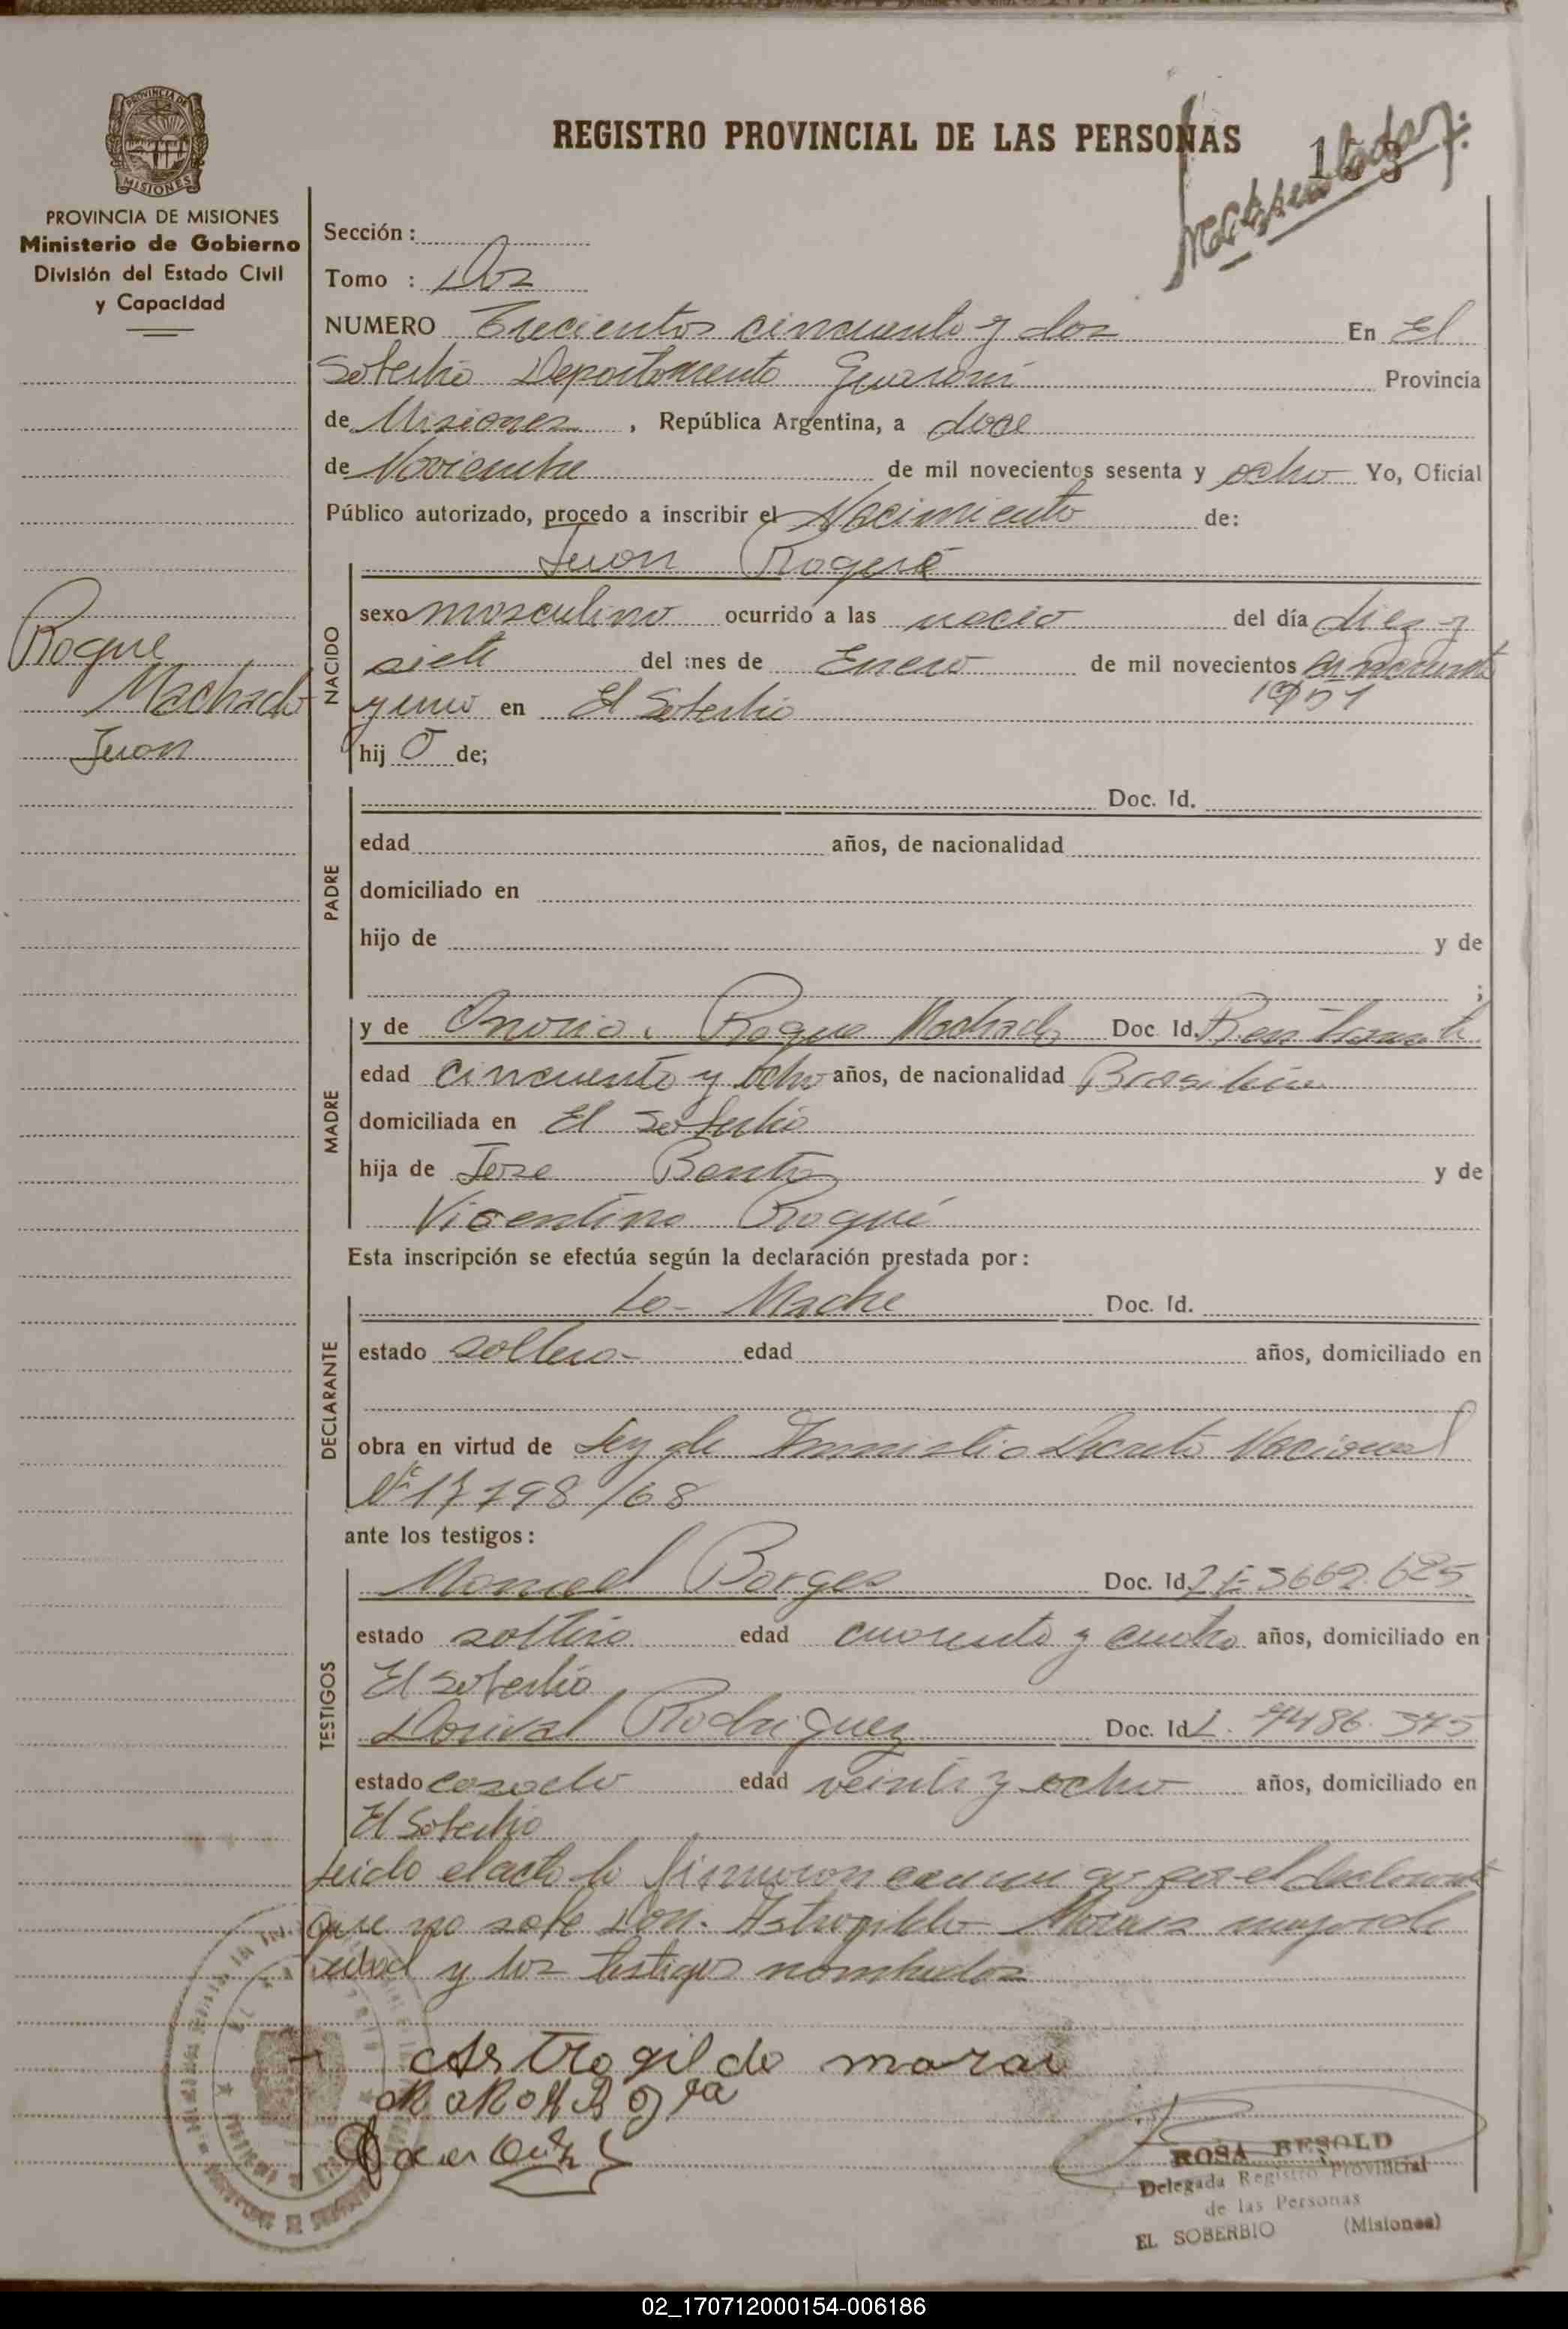 PROVINCIA DE MISIONES
PROVINCIA DE MISIONES
Ministerio de Gobierno
División del Estado Civil
y Capacidad
REGISTRO PROVINCIAL DE LAS PERSONAS
Sección :
Tomo : Dos
NUMERO Trecientos cincuenta y dos En El
Soberbio Departamento Guarani Provincia
de Misiones , República Argentina, a doce
de Noviembre de mil novecientos sesenta y ocho Yo, Oficial
Público autorizado, procedo a inscribir el Nacimiento de:
Juan Roque
Roque
Machado
Juan
NACIDO
sexo masculino ocurrido a las nacio del día diez y
siete del mes de Enero de mil novecientos cincuenta
1951
y uno en El Soberbio
hij o de;
PADRE
Doc. Id.
edad años, de nacionalidad
domiciliado en
hijo de y de
;
MADRE
y de Roque Machado Doc. Id.
edad cincuenta y ocho años, de nacionalidad Brasilera
domiciliada en El Soberbio
hija de Jose Bento y de
Vicentina Roque
Esta inscripción se efectúa según la declaración prestada por :
DECLARANTE
La Madre Doc. Id.
estado soltera edad años, domiciliado en
obra en virtud de Ley de Amnistia Decreto Nacional
Nº 17798/68
ante los testigos :
TESTIGOS
Manuel Borges Doc. Id. 3669.625
estado soltero edad cuarenta y cuatro años, domiciliado en
El Soberbio
Dorival Rodriguez Doc. Id. 7486.375
estado casado edad veinti y ocho años, domiciliado en
El Soberbio
Leido el acta la firmaron por el declarante
que no sabe Don. Astrogildo Morais mayor de
edad y los testigos nombrados
Astrogildo morai
ROSA BESOLD
Delegada Registro Provincial
de las Personas
EL SOBERBIO (Misiones)
02_170712000154-006186